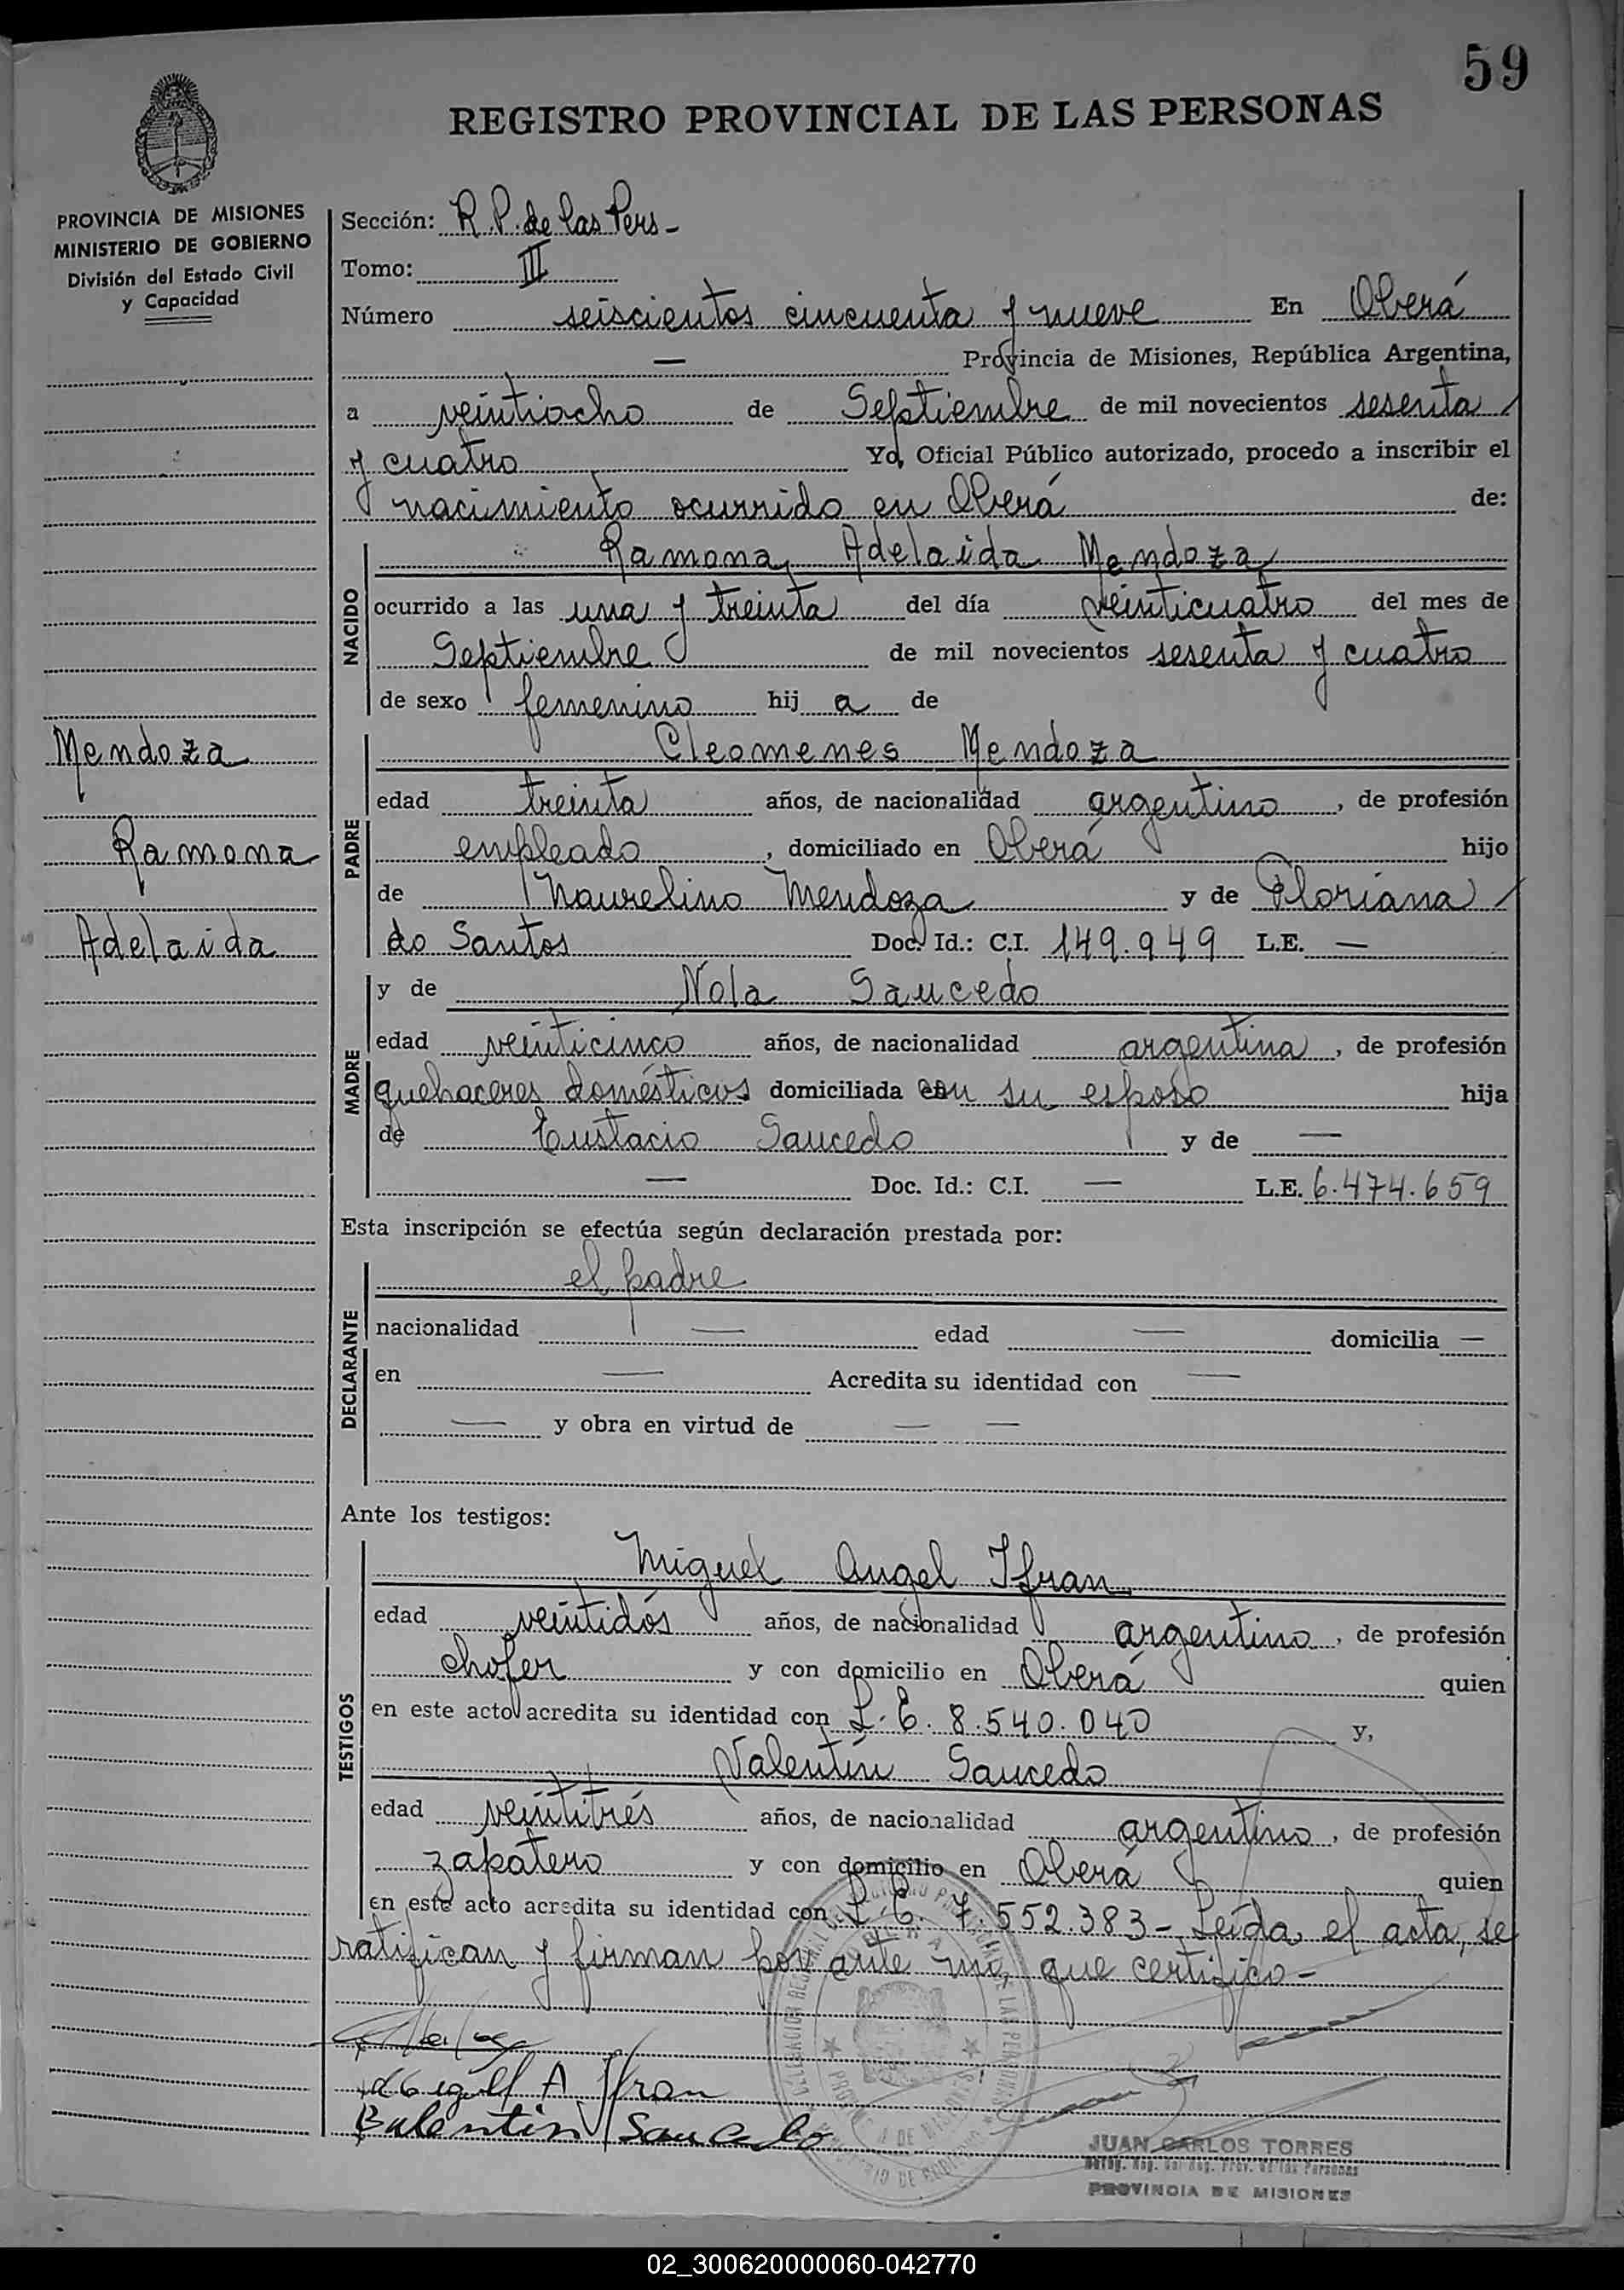 59
REGISTRO PROVINCIAL DE LAS PERSONAS
PROVINCIA DE MISIONES
MINISTERIO DE GOBIERNO
División del Estado Civil
y Capacidad
Sección: R.P. de las Pers-
Tomo: III
Número seiscientos cincuenta y nueve En Oberá
— Provincia de Misiones, República Argentina,
a veintiocho de Septiembre de mil novecientos sesenta
y cuatro Yo, Oficial Público autorizado, procedo a inscribir el
nacimiento ocurrido en Oberá de:
NACIDO
Ramona Adelaida Mendoza
ocurrido a las una y treinta del día veinticuatro del mes de
Septiembre de mil novecientos sesenta y cuatro
de sexo femenino hij a de
Mendoza
Ramona
Adelaida
PADRE
Cleomenes Mendoza
edad treinta años, de nacionalidad argentino, de profesión
empleado, domiciliado en Oberá hijo
de Maurelino Mendoza y de Floriana
do Santos Doc. Id.: C.I. 149.949 L.E. —
MADRE
y de Nola Saucedo
edad veinticinco años, de nacionalidad argentina, de profesión
quehaceres domésticos domiciliada con su esposo hija
de Eustacio Saucedo y de —
— Doc. Id.: C.I. — L.E. 6.474.659
Esta inscripción se efectúa según declaración prestada por:
DECLARANTE
el padre
nacionalidad — edad — domicilia —
en — Acredita su identidad con —
— y obra en virtud de — —
Ante los testigos:
TESTIGOS
Miguel Angel Ifran
edad veintidós años, de nacionalidad argentino, de profesión
chofer y con domicilio en Oberá quien
en este acto acredita su identidad con L.E. 8.540.040 y,
Valentín Saucedo
edad veintitrés años, de nacionalidad argentino, de profesión
zapatero y con domicilio en Oberá quien
en este acto acredita su identidad con L.E. 7.552.383- Leída el acta, se
ratifican y firman por ante mí, que certifico-
A Ifran
Balentin Saucedo
JUAN CARLOS TORRES
PROVINCIA DE MISIONES
02_300620000060-042770